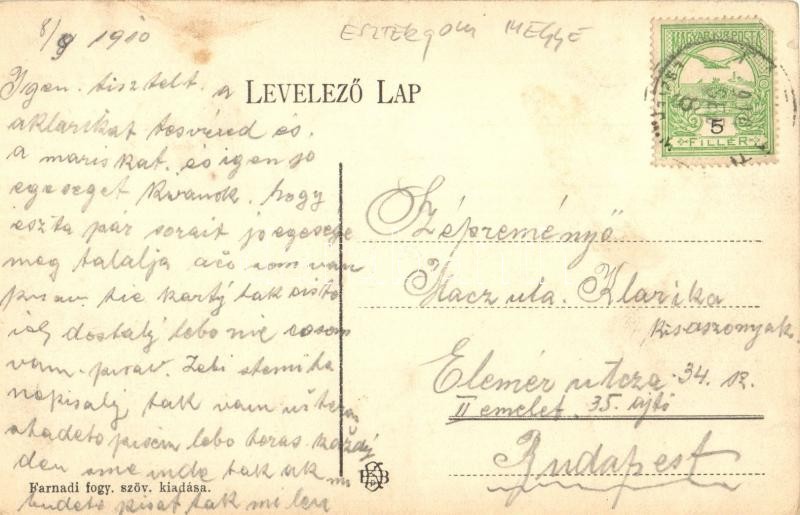 8/9 1910
ESZTERGOM MEGYE
LEVELEZŐ LAP
MAGYAR KIR. POSTA
5
FILLÉR
Igen. tisztelt. a
aklarikat tesvéred és.
a mariskat. és igen jo
egeseget kivanok. hogy
eszta pár sorait jo egesege
meg talalja ačo som vam
pisav. tie kartý tak aisto
ich dostalj lebo nie
vam. pisav. Žebi ste mi ha
napisalj tak vam
lebo teras každý
den sme inde tak ak mi
budeto pisat tak
Szépreményő
Klarika
kisaszonyak.
Elemér utcza 34. sz.
II emelet. 35. ajtó
Budapest
Farnadi fogy. szöv. kiadása.